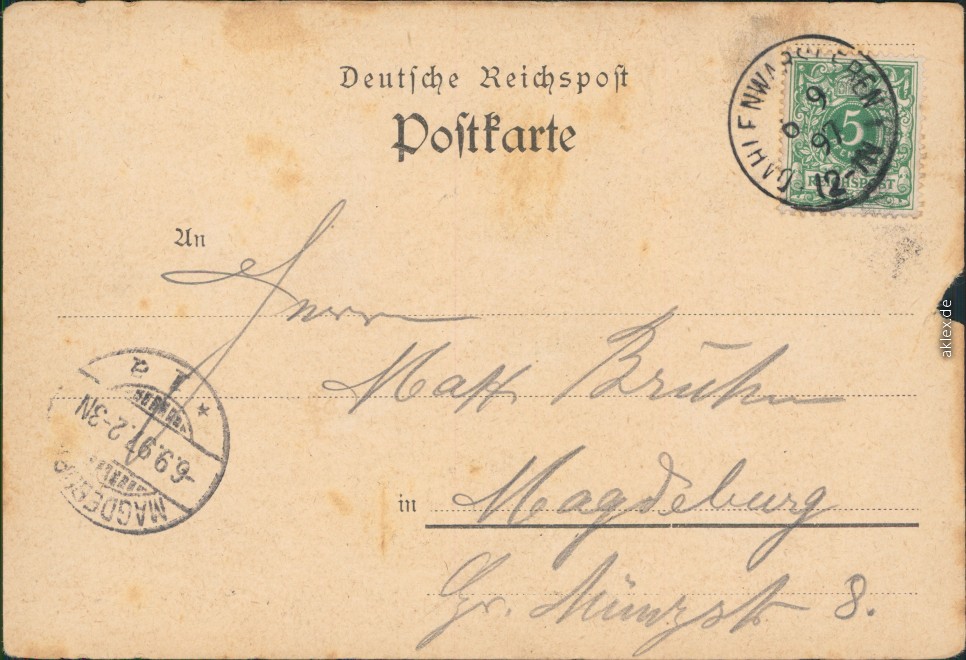 Deutsche Reichspost
Postkarte
DAHLENWARSLEBEN
9
97
12-1N
5
REICHSPOST
An
Herrn
Max Bruhn
in Magdeburg
Gr. Münzstr 8.
MAGDEBURG
6.9.97.2-3N
*1a
aklex.de